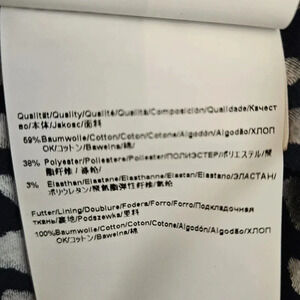 Qualität/Quality/Qualité/Qualità/Composición/Qualidade/Качест
во/本体/Jakosc/面料
59% Baumwolle/Cotton/Coton/Cotone/Algodón/Algodão/ХЛОП
OK/コットン/Bawełna/棉/
38% Polyester/Poliestere/Poliester/ПОЛИЭСТЕР/ポリエステル/聚
酯纤维/涤纶/
3% Elasthan/Elastane/Elasthanne/Elastan/Elastano/ЭЛАСТАН/
ポリウレタン/聚氨酯弹性纤维/氨纶
Futter/Lining/Doublure/Fodera/Forro/Forro/Подкладочная
ткань/裏地/Podszewka/里料
100%Baumwolle/Cotton/Coton/Cotone/Algodón/Algodão/ХЛОП
OK/コットン/Bawełna/棉/